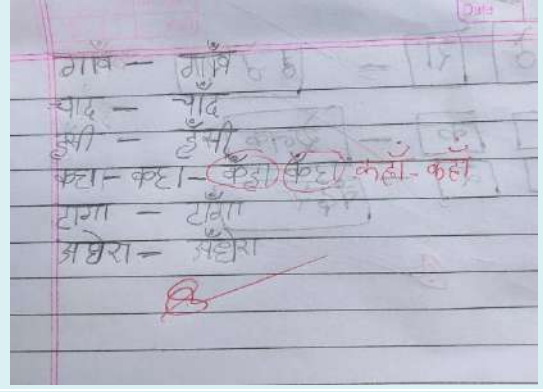 Date
गाव - गाँव
चाद - चाँद
हसी - हँसी
कहा - कहा - कँहा कँहा कहाँ - कहाँ
टागा - टाँगा
अधेरा - अँधेरा